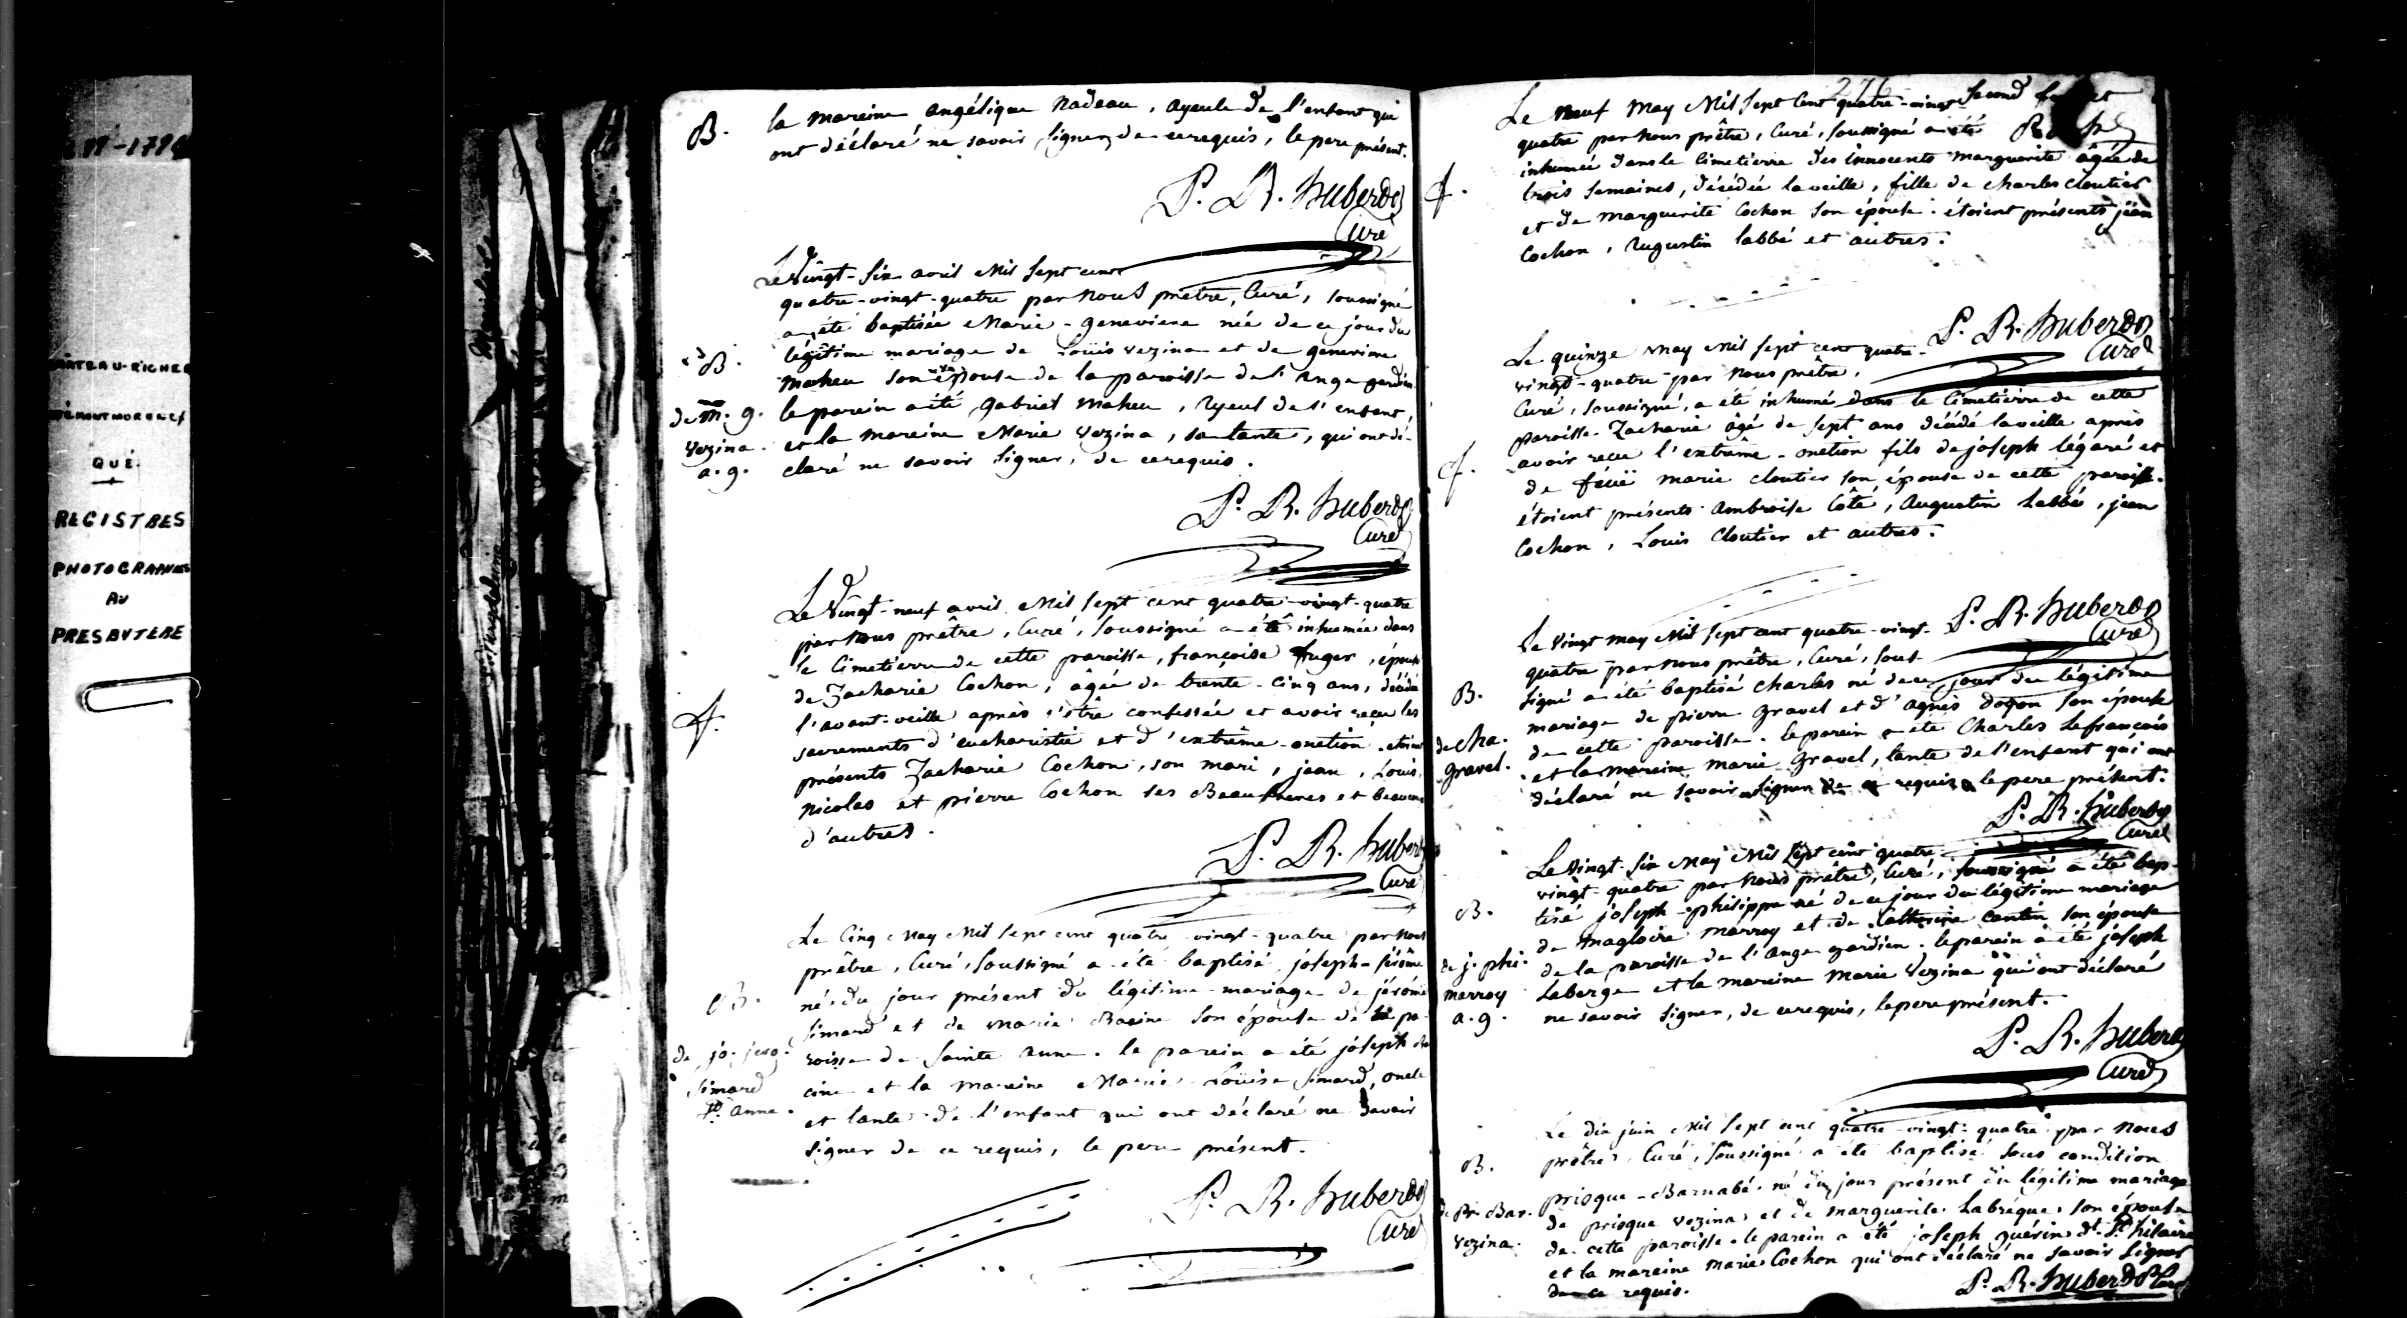 -1784
CHÂTEAU-RICHER
MONTMORENCY
QUÉ.
REGISTRES
PHOTOGRAPHIÉS
AU
PRESBYTERE
B.
la mareine angélique Nadeau, ayeule de l'enfant qui
ont déclaré ne savoir signer, de ce requis, le pere présent.
P. R. Huberdo
Curé
Le Vingt-six avril Mil sept cent
quatre-vingt-quatre par Nous prêtre, Curé, soussigné
a été baptisée Marie-Genevieve née de ce jour du
légitime mariage de Loüis vezina et de genevieve
maheu son épouse de la paroisse de l'Ange gardien
le parein a été Gabriel maheu, Ayeul de l'enfant,
et la mareine Marie Vezina, sa tante, qui ont dé-
claré ne savoir signer, de ce requis.
B.
de m. g.
vezina.
a. g.
P. R. Huberdo
Curé
Le Vingt-neuf avril Mil sept cent quatre-vingt-quatre
par Nous prêtre, Curé, soussigné a été inhumée dans
le Cimetierre de cette paroisse, françoise Auger, épouse
de Zacharie Cochon, âgée de trente-cinq ans, décédée
l'avant-veille après s'être confessée et avoir reçue les
sacrements d'eucharistie et d'extrême-onction. étoient
présents Zacharie Cochon, son mari, jean, Louis,
Nicolas et pierre Cochon ses Beaufreres et beaucoup
d'autres.
f.
P. R. Huberdo
Curé
Le Cinq May Mil sept cent quatre-vingt-quatre par Nous
prêtre, Curé, soussigné a été baptisé, joseph-jérôme
né du jour présent du légitime mariage de jérôme
simard et de marie Racine son épouse de la pa-
roisse de Sainte Anne. le parein a été joseph Ra
cine et la mareine Marie Loüise simard, oncle
et tante de l'enfant qui ont déclaré ne savoir
signer de ce requis, le pere présent.
B.
de jo. jero.
simard
Ste anne.
P. R. Huberdo
Curé
276
second feuillet
Le Neuf May Mil sept Cent quatre-vingt
quatre par Nous prêtre, Curé, soussigné a été
inhumée dans le Cimetierre des innocents Marguerite âgée de
trois semaines, décédée la veille, fille de charles cloutier
et de marguerite Cochon son épouse. étoient présents jean
Cochon, Augustin labbé et autres.
f.
P. R. Huberdo
Curé
Le quinze may Mil sept cent quatre-
vingt-quatre par Nous prêtre,
Curé, soussigné, a été inhumé dans le Cimetierre de cette
paroisse Zacharie âgé de sept ans décédé la veille après
avoir reçu l'extrême-onction fils de joseph légaré et
de feüe marie cloutier son épouse de cette paroisse.
étoient présents Ambroise Côté, Augustin Labbé, jean
Cochon, Louis Cloutier et autres.
f.
P. R. Huberdo
Curé
Le Vingt may Mil sept cent quatre-vingt-
quatre par nous prêtre, Curé, sous-
signé a été baptisé charles né de ce jour du légitime
mariage de pierre gravel et d'agnès dogon son épouse
de cette paroisse. le parein a été Charles Lefrançois
et la mareine marie Gravel, tante de l'enfant qui ont
déclaré ne savoir signer de ce requis le pere présent.
B.
de cha.
gravel.
P. R. Huberdo
Curé
Le Vingt-six May Mil sept cent quatre
vingt-quatre par Nous prêtre, Curé, soussigné a été bap-
tisé joseph-philippe né de ce jour du légitime mariage
de magloire marroy et de Catherine cantin son épouse
de la paroisse de l'Ange gardien. le parein a été joseph
Laberge et la mareine Marie Vezina qui ont déclaré
ne savoir signer, de ce requis, le pere présent.
B.
de j. phi.
marroy
a. g.
P. R. Huberdo
Curé
Le dix juin Mil sept cent quatre-vingt-quatre par nous
prêtre, Curé, soussigné a été baptisé sous condition
prisque-Barnabé né du jour présent du légitime mariage
de prisque vezina et de marguerite Labréque son épouse
de cette paroisse. le parein a été joseph guérin dt St hilaire
et la mareine marie Cochon qui ont déclaré ne savoir signer
de ce requis.
B.
de Pr. Bar.
vezina.
P. R. Huberdo